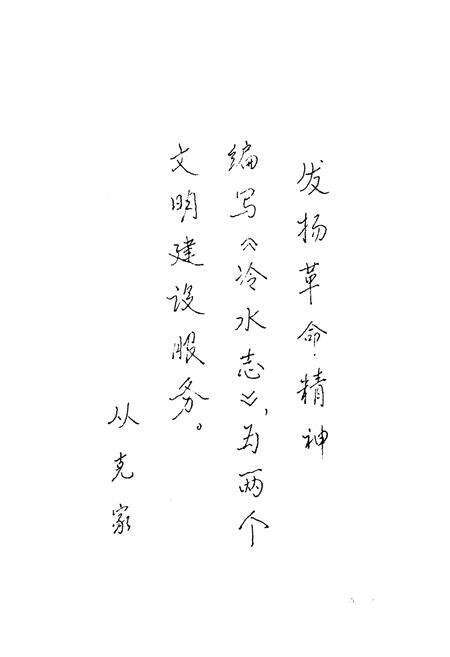 发扬革命精神
编写《冷水志》，为两个
文明建设服务。
从克家